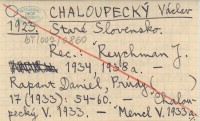 CHALOUPECKÝ Václav
1923. Staré Slovensko.
Rec.: Reychman J.
1934, 1938a. —
Rapant Daniel, Prúdy
17 (1933): 54-60. — Chalou-
pecký V. 1933. — Mencl V. 1933a.